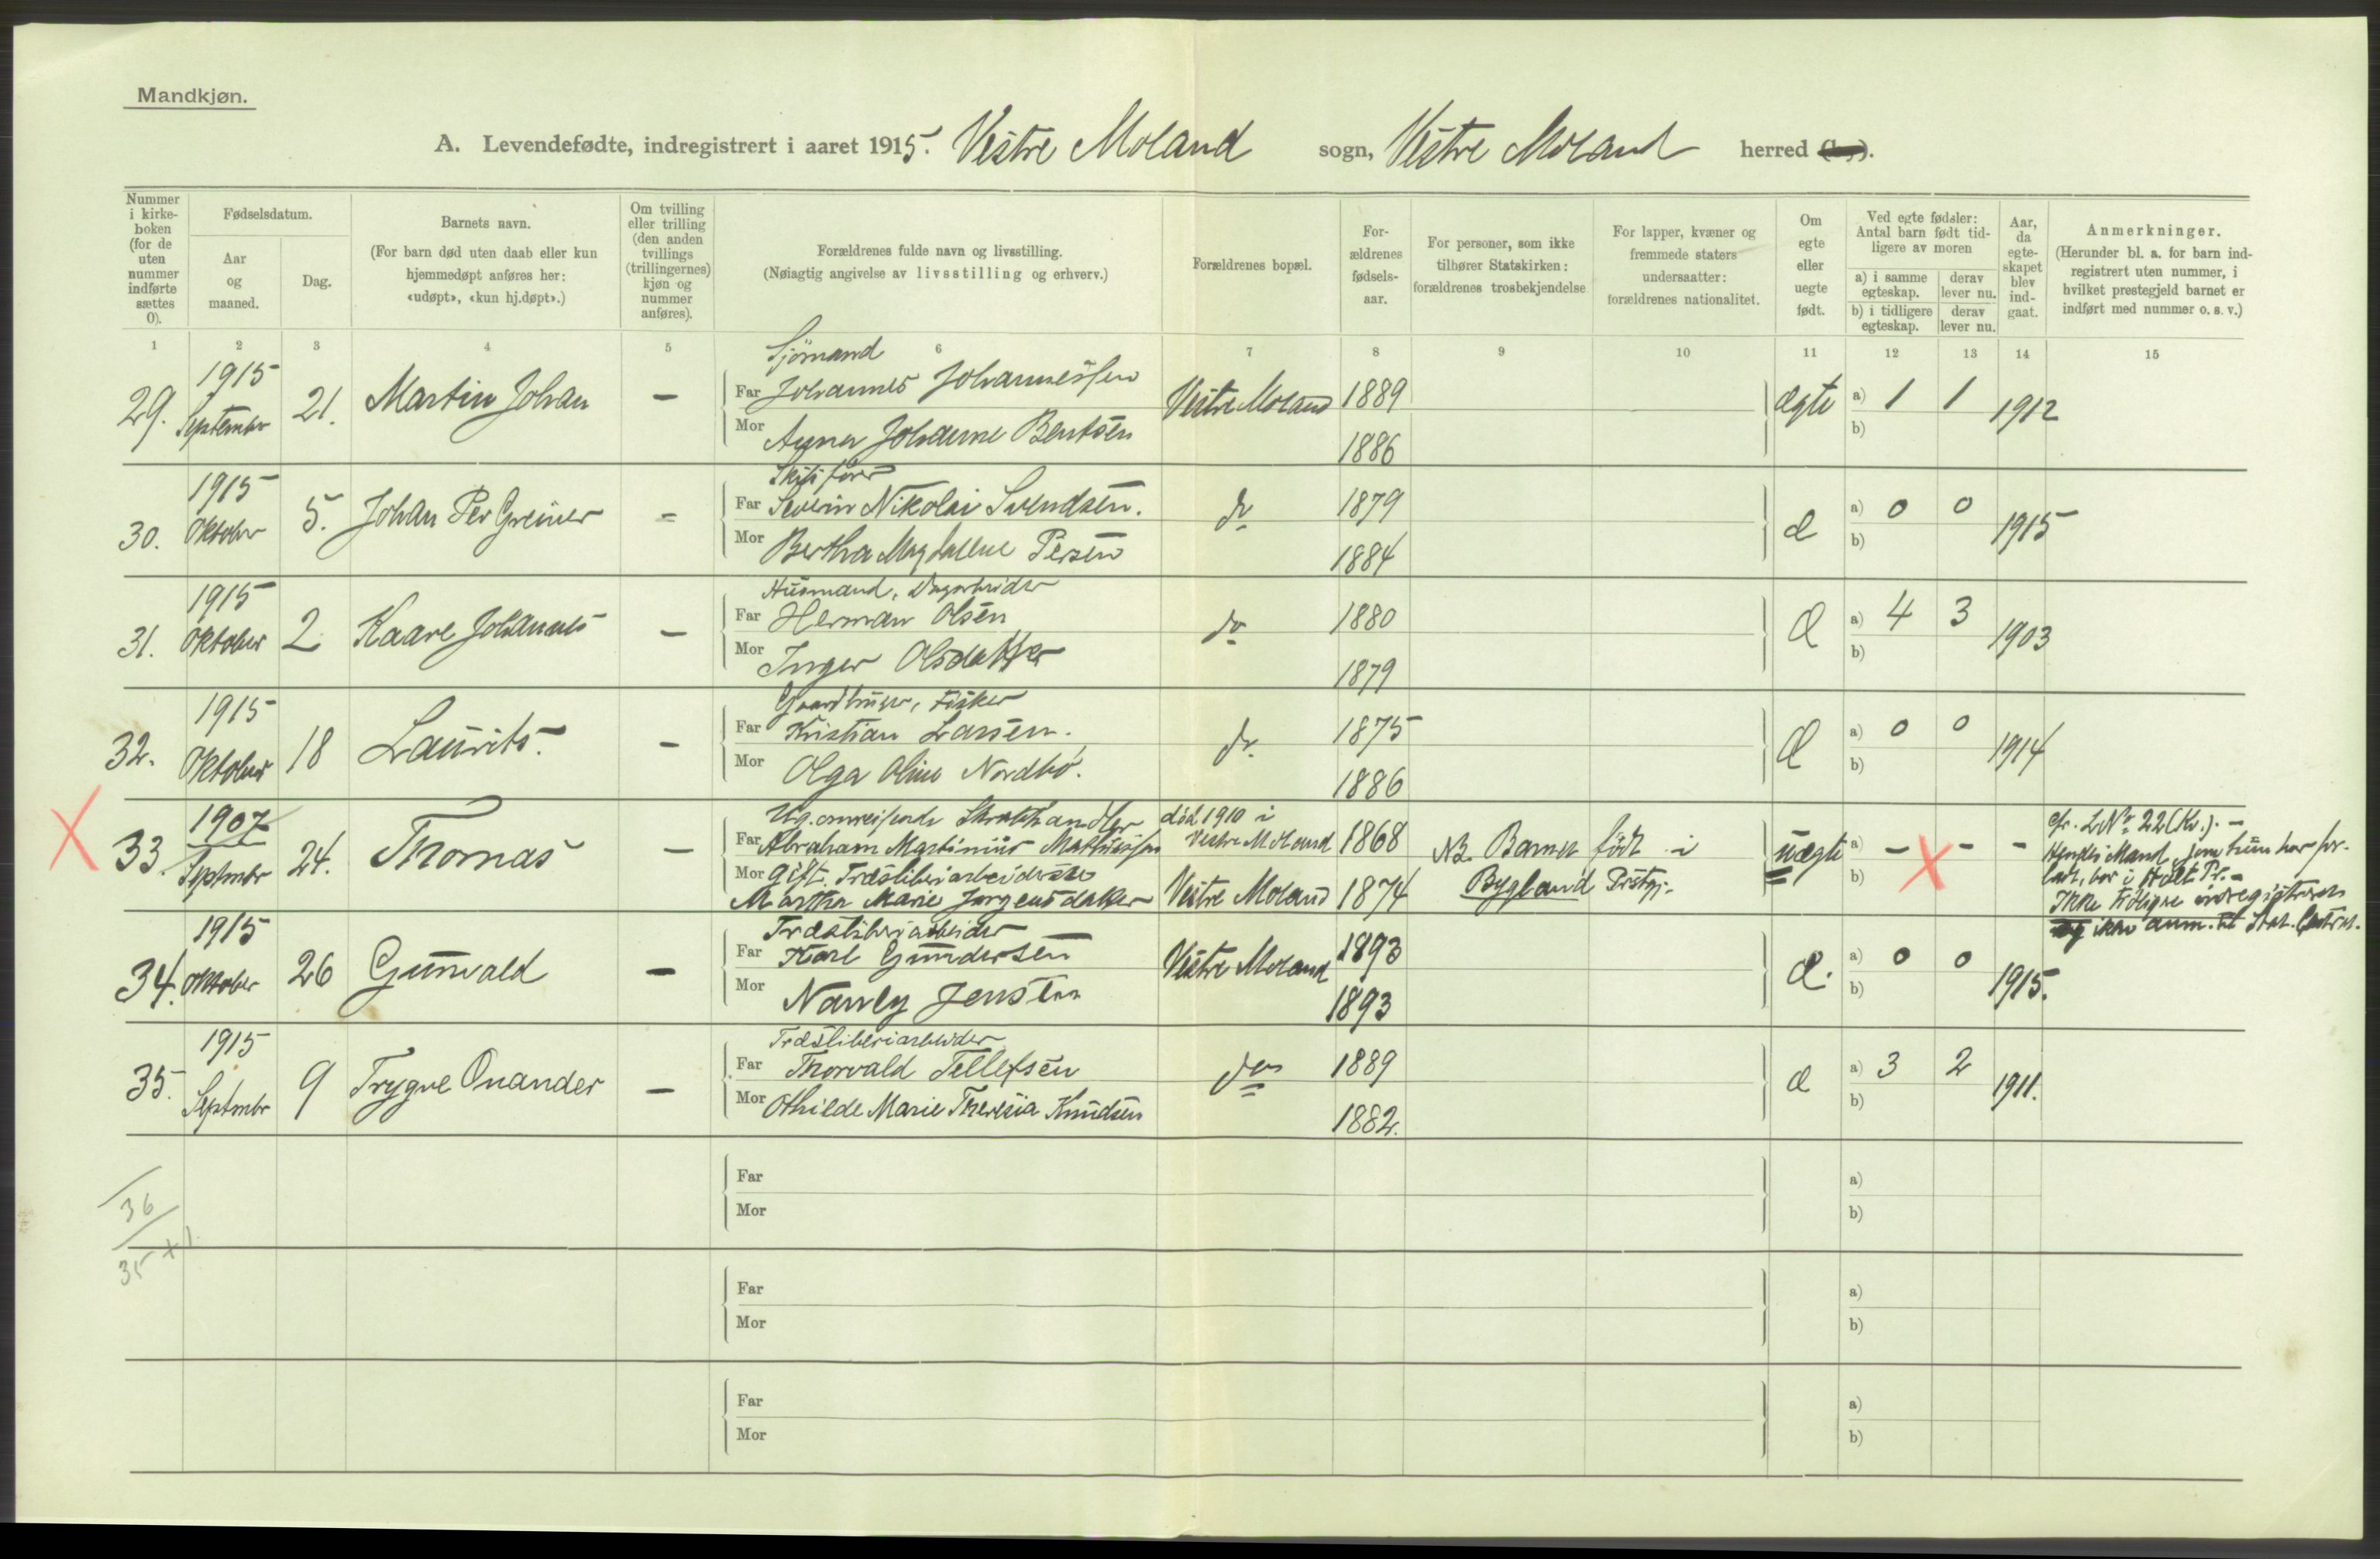 Mandkjøn.
A. Levendefødte, indregistrert i aaret 1915. Vestre Moland sogn, Vestre Moland herred
Nummer i kirke-boken (for de uten nummer indførte sættes 0).
Fødselsdatum.
Aar og maaned.
Dag.
Barnets navn.
(For barn død uten daab eller kun hjemmedøpt anføres her: «udøpt», «kun hj.døpt».)
Om tvilling eller trilling (den anden tvillings (trillingernes) kjøn og nummer anføres).
Forældrenes fulde navn og livsstilling.
(Nøiagtig angivelse av livsstilling og erhverv.)
Forældrenes bopæl.
For-ældrenes fødsels-aar.
For personer, som ikke tilhører Statskirken: forældrenes trosbekjendelse
For lapper, kvæner og fremmede staters undersaatter: forældrenes nationalitet.
Om egte eller uegte født.
Ved egte fødsler: Antal barn født tid-ligere av moren
a) i samme egteskap.
derav lever nu.
b) i tidligere egteskap.
derav lever nu.
Aar, da egte-skapet blev ind-gaat.
Anmerkninger.
(Herunder bl. a. for barn ind-registrert uten nummer, i hvilket prestegjeld barnet er indført med nummer o. s. v.)
1 2 3 4 5 6 7 8 9 10 11 12 13 14 15
29. 1915 September 21. Martin Johan –
Sjömand
Far Johannes Johannessen Vestre Moland 1889 ægte a) 1 1 1912
Mor Agna Johanne Bentsen 1886 b)
30. 1915 Oktober 5. Johan Per Greiner –
Skibsförer
Far Severin Nikolai Svendsen. do 1879 æ a) 0 0 1915
Mor Bertha Magdalene Persen 1884 b)
31. 1915 Oktober 2 Kaare Johannes –
Husmand, Dagarbeider
Far Herman Olsen do 1880 Æ a) 4 3 1903
Mor Inger Olsdatter 1879 b)
32. 1915 Oktober 18 Laurits. –
Gaardbruger, Fisker
Far Kristian Larsen. do 1875 Æ a) 0 0 1914
Mor Olga Oline Nordbö. 1886 b)
33. 1907 September 24. Thomas –
Ug. omreisende Skraphandler död 1910 i
Far Abraham Martinius Mathiassen Vestre Moland 1868 NB. Barnet födt i uægte a) – – –
Mor Gift. Træsliberiarbeiderske
Martha Marie Jörgensdatter Vestre Moland 1874 Bygland Prstgj. b)
cfr. LNr 22 (Kv.). –
Hendes Mand, som hun har for-
ladt, bor i Holt Pr. –
Ikke tidligere indregistreret
og ikke anm. til Stat. Centr.
34. 1915 Oktober 26 Gunvald –
Træsliberiarbeider
Far Karl Gundersen Vestre Moland 1893 æ. a) 0 0 1915.
Mor Nanly Jensen 1893 b)
35. 1915 September 9 Trygve Onander –
Træsliberiarbeider
Far Thorvald Tellefsen do 1889 æ a) 3 2 1911.
Mor Othilde Marie Theresia Knudsen 1882. b)
Far a)
Mor b)
36
35 + 1.
Far a)
Mor b)
Far a)
Mor b)